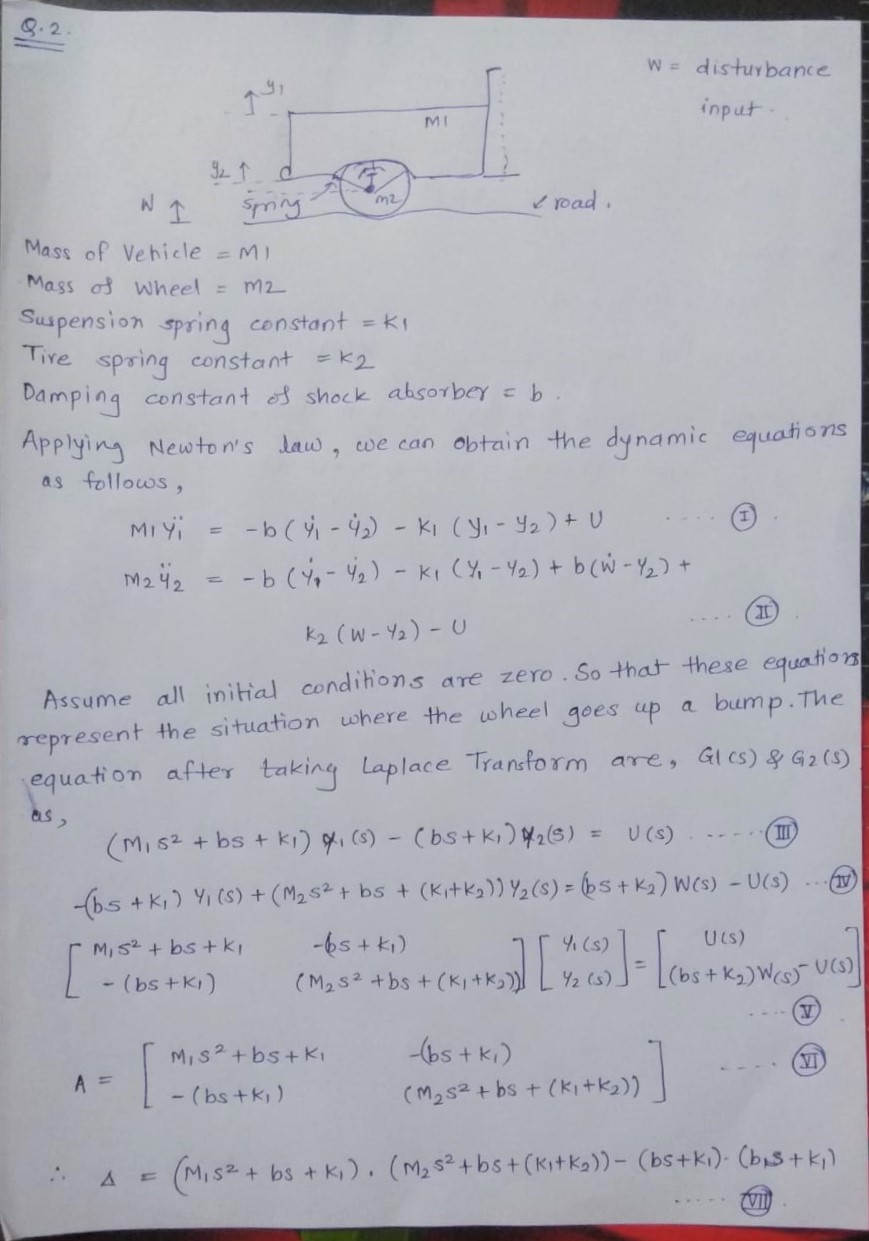 Q.2.
W = disturbance
input.
y1
M1
y2
W
spring
m2
road.
Mass of Vehicle = M1
Mass of Wheel = m2
Suspension spring constant = K1
Tire spring constant = K2
Damping constant of shock absorber = b.
Applying Newton's law, we can obtain the dynamic equations
as follows,
M1ÿ1 = -b(ẏ1 - ẏ2) - K1(y1 - y2) + U .... (I)
M2ÿ2 = -b(ẏ1 - ẏ2) - K1(y1 - y2) + b(ẇ - y2) +
K2(W - y2) - U .... (II)
Assume all initial conditions are zero. So that these equations
represent the situation where the wheel goes up a bump. The
equation after taking Laplace Transform are, G1(s) & G2(s)
as,
(M1s² + bs + K1) Y1(s) - (bs + K1) Y2(s) = U(s) ...... (III)
-(bs + K1) Y1(s) + (M2s² + bs + (K1+K2)) Y2(s) = (bs + K2) W(s) - U(s) ... (IV)
[ M1s² + bs + K1 -(bs + K1) ] [ Y1(s) ] = [ U(s) ]
[ -(bs + K1) (M2s² + bs + (K1+K2)) ] [ Y2(s) ] [ (bs + K2) W(s) - U(s) ]
.... (V)
A = [ M1s² + bs + K1 -(bs + K1) ] .... (VI)
[ -(bs + K1) (M2s² + bs + (K1+K2)) ]
∴ Δ = (M1s² + bs + K1) . (M2s² + bs + (K1+K2)) - (bs + K1) . (bs + K1)
..... (VII)